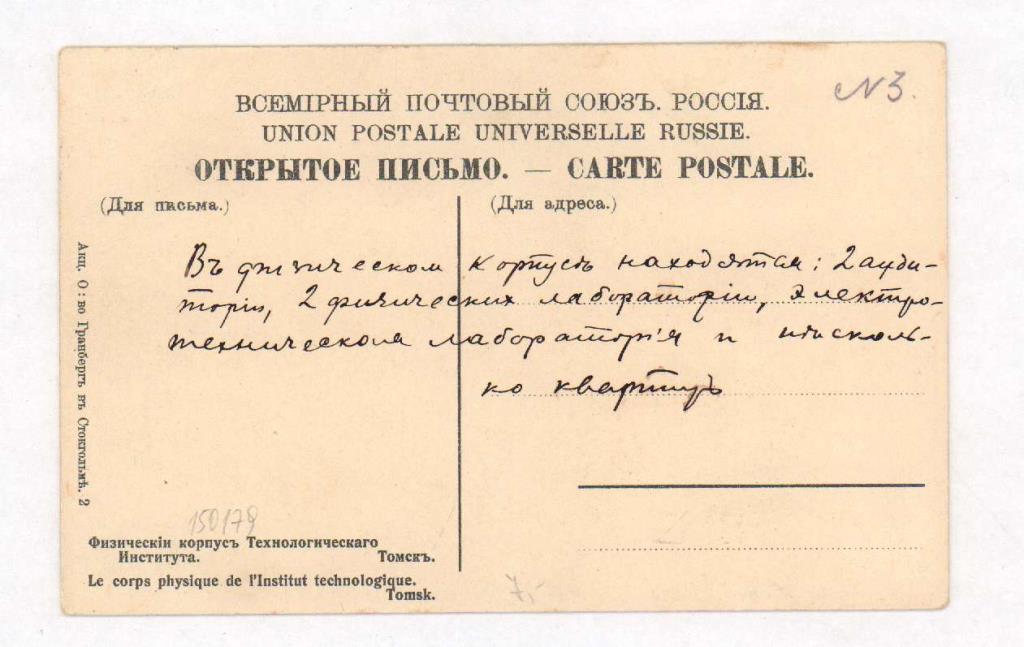 N3.
ВСЕМІРНЫЙ ПОЧТОВЫЙ СОЮЗЪ. РОССІЯ.
UNION POSTALE UNIVERSELLE RUSSIE.
ОТКРЫТОЕ ПИСЬМО. — CARTE POSTALE.
(Для письма.) (Для адреса.)
Въ физическом корпусѣ находятся: 2 ауди-
торіи, 2 физических лабораторіи, электро-
техническая лабораторія и нѣсколь-
ко квартиръ
Акц. О:во Гранбергъ въ Стокгольмѣ. 2
150179
Физическiи корпусъ Технологическаго
Института. Томскъ.
Le corps physique de l'Institut technologique.
Tomsk.
7,-